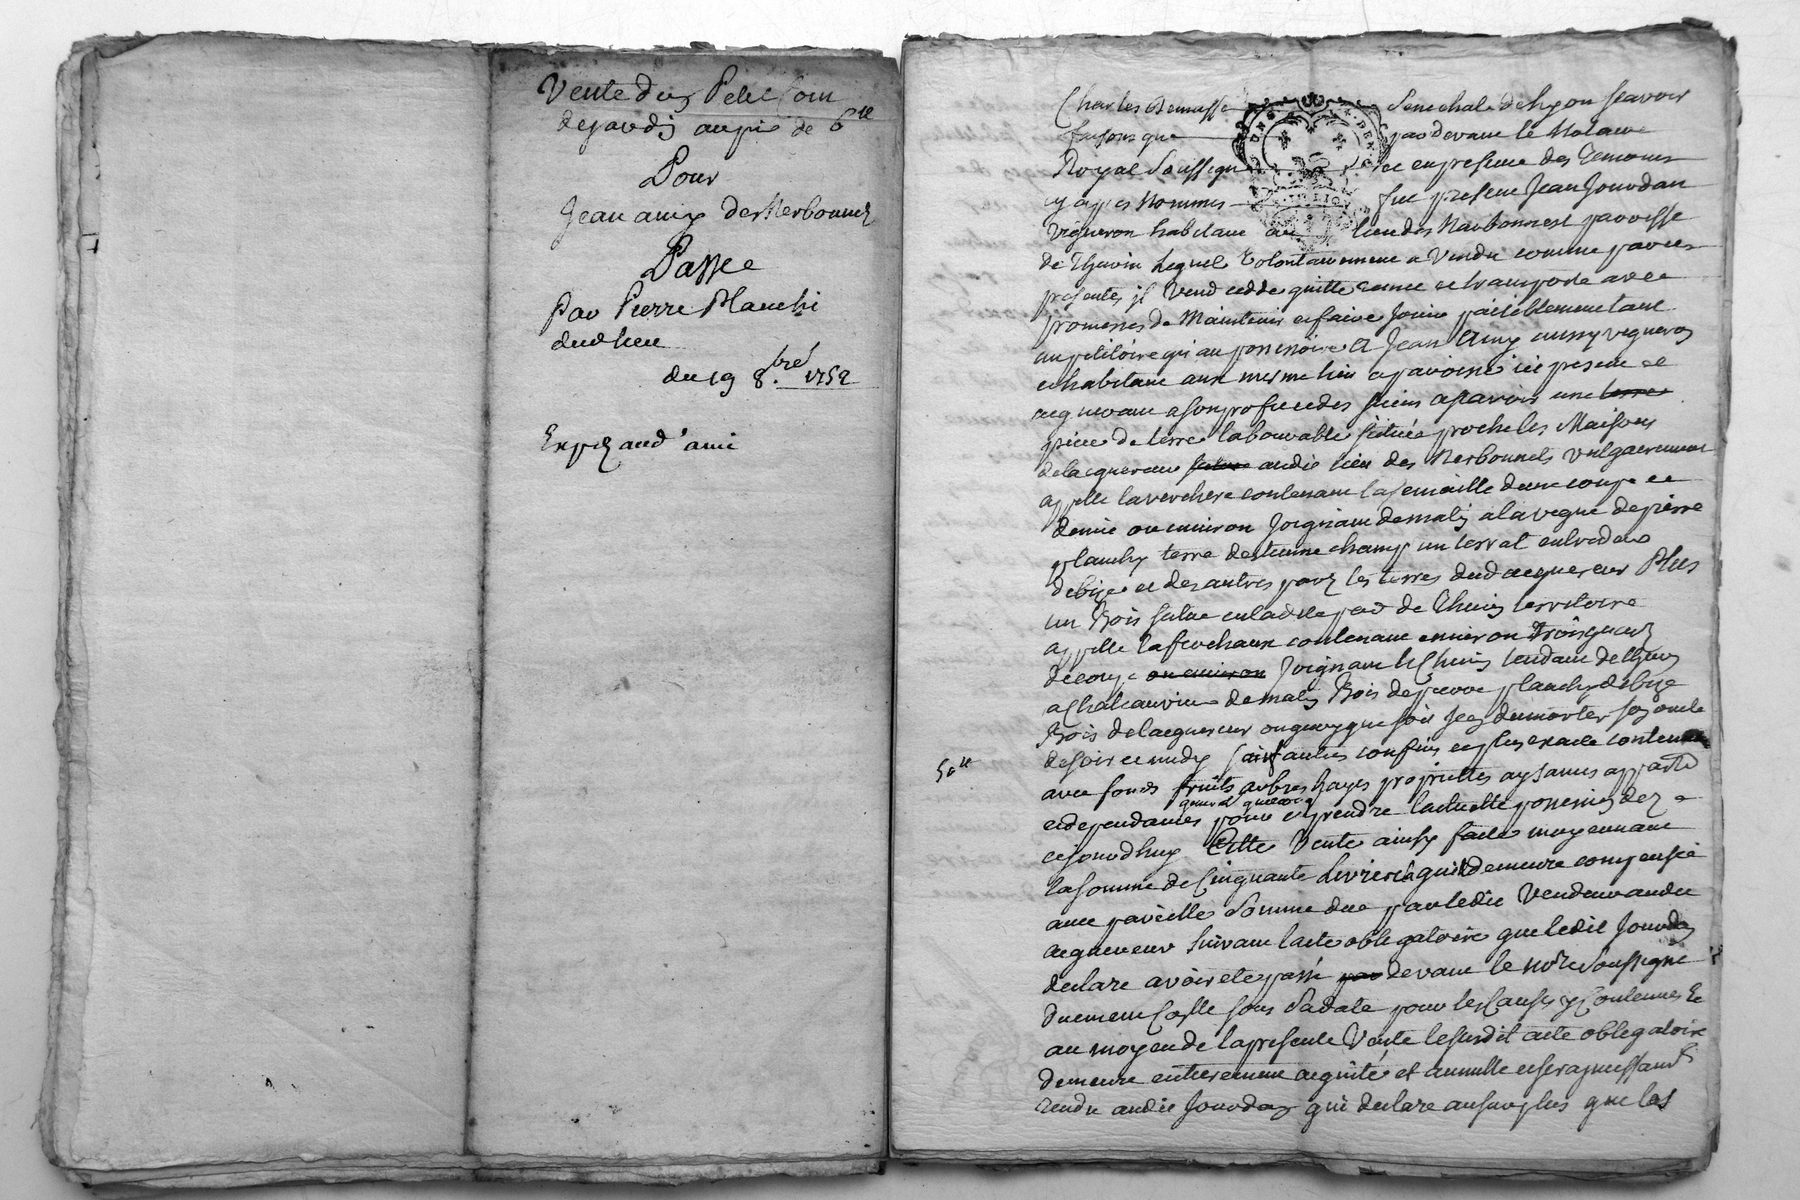 Vente du Petit
de jardi au prix de 6ᵗᵗ
Pour
Jean amy des Nerbonnes
Passée
Par Pierre Planchi
dud lieu
du 19 8.bre 1752
Exp and ami
Charles Senechal de Lyon scavoir
faisons que pardevant le Notaire
Royal Soussigné et en presence des Temoins
cy apres Nommes fut present Jean Jourdan
Vigneron habitant au lieu des Narbonnest parroisse
de Theizin Lequel Volontairement a Vendu comme par ces
presentes il Vend cedde quitte remet et transporte avec
promesses de Maintenir et faire Jouir paisiblement tant
au petitoire qu'au possessoire a Jean Amy aussy vigneron
et habitant aux mesme lieu et paroisse icy present et
acquerant a son profit et des siens a scavoir une terre
piece de terre labourable située proche les Maisons
de lacquereur audit lieu des Nerbonnets vulgairement
appelle la verchere contenant la semaille dune coupe et
demie ou environ Joignant de matin a la vegne de pierre
planchy terre destienne champ un terrat entredeux
de bize et des autres parts les terres dud acquereur Plus
un Bois situé en lad de territoire
appelle contenant environ trois quarts
de coupe ou environ Joignant le Chemin tendant de
a Chateauvieux de matin Bois de pierre planchy de bize
Bois de lacquereur ou quoy que soit Jean dumortes son oncle
de soir et midy sauf autres confins et plus exacte contenue
5oᵗᵗ
avec fonds fruits arbres hayes proprietes aysances appartᶜᵉ
et dependances pour en prendre lactuelle possession dez
cejourdhuy Cette Vente ainsy faite moyennant
la somme de Cinquante Livres la quelle demeure compensée
avec pareille Somme due par ledit Vendeur audit
acquereur Suivant lacte obligatoire que ledit Jourdan
declare avoir ete passé par devant le notre Soussigné
sous Sa date pour les Causes y Contenues Et
au moyen de la presente Vente lesusdit acte obligatoire
demeure entierement acquité et annullé et sera
rendu audit Jourdan qui declare au surplus que les